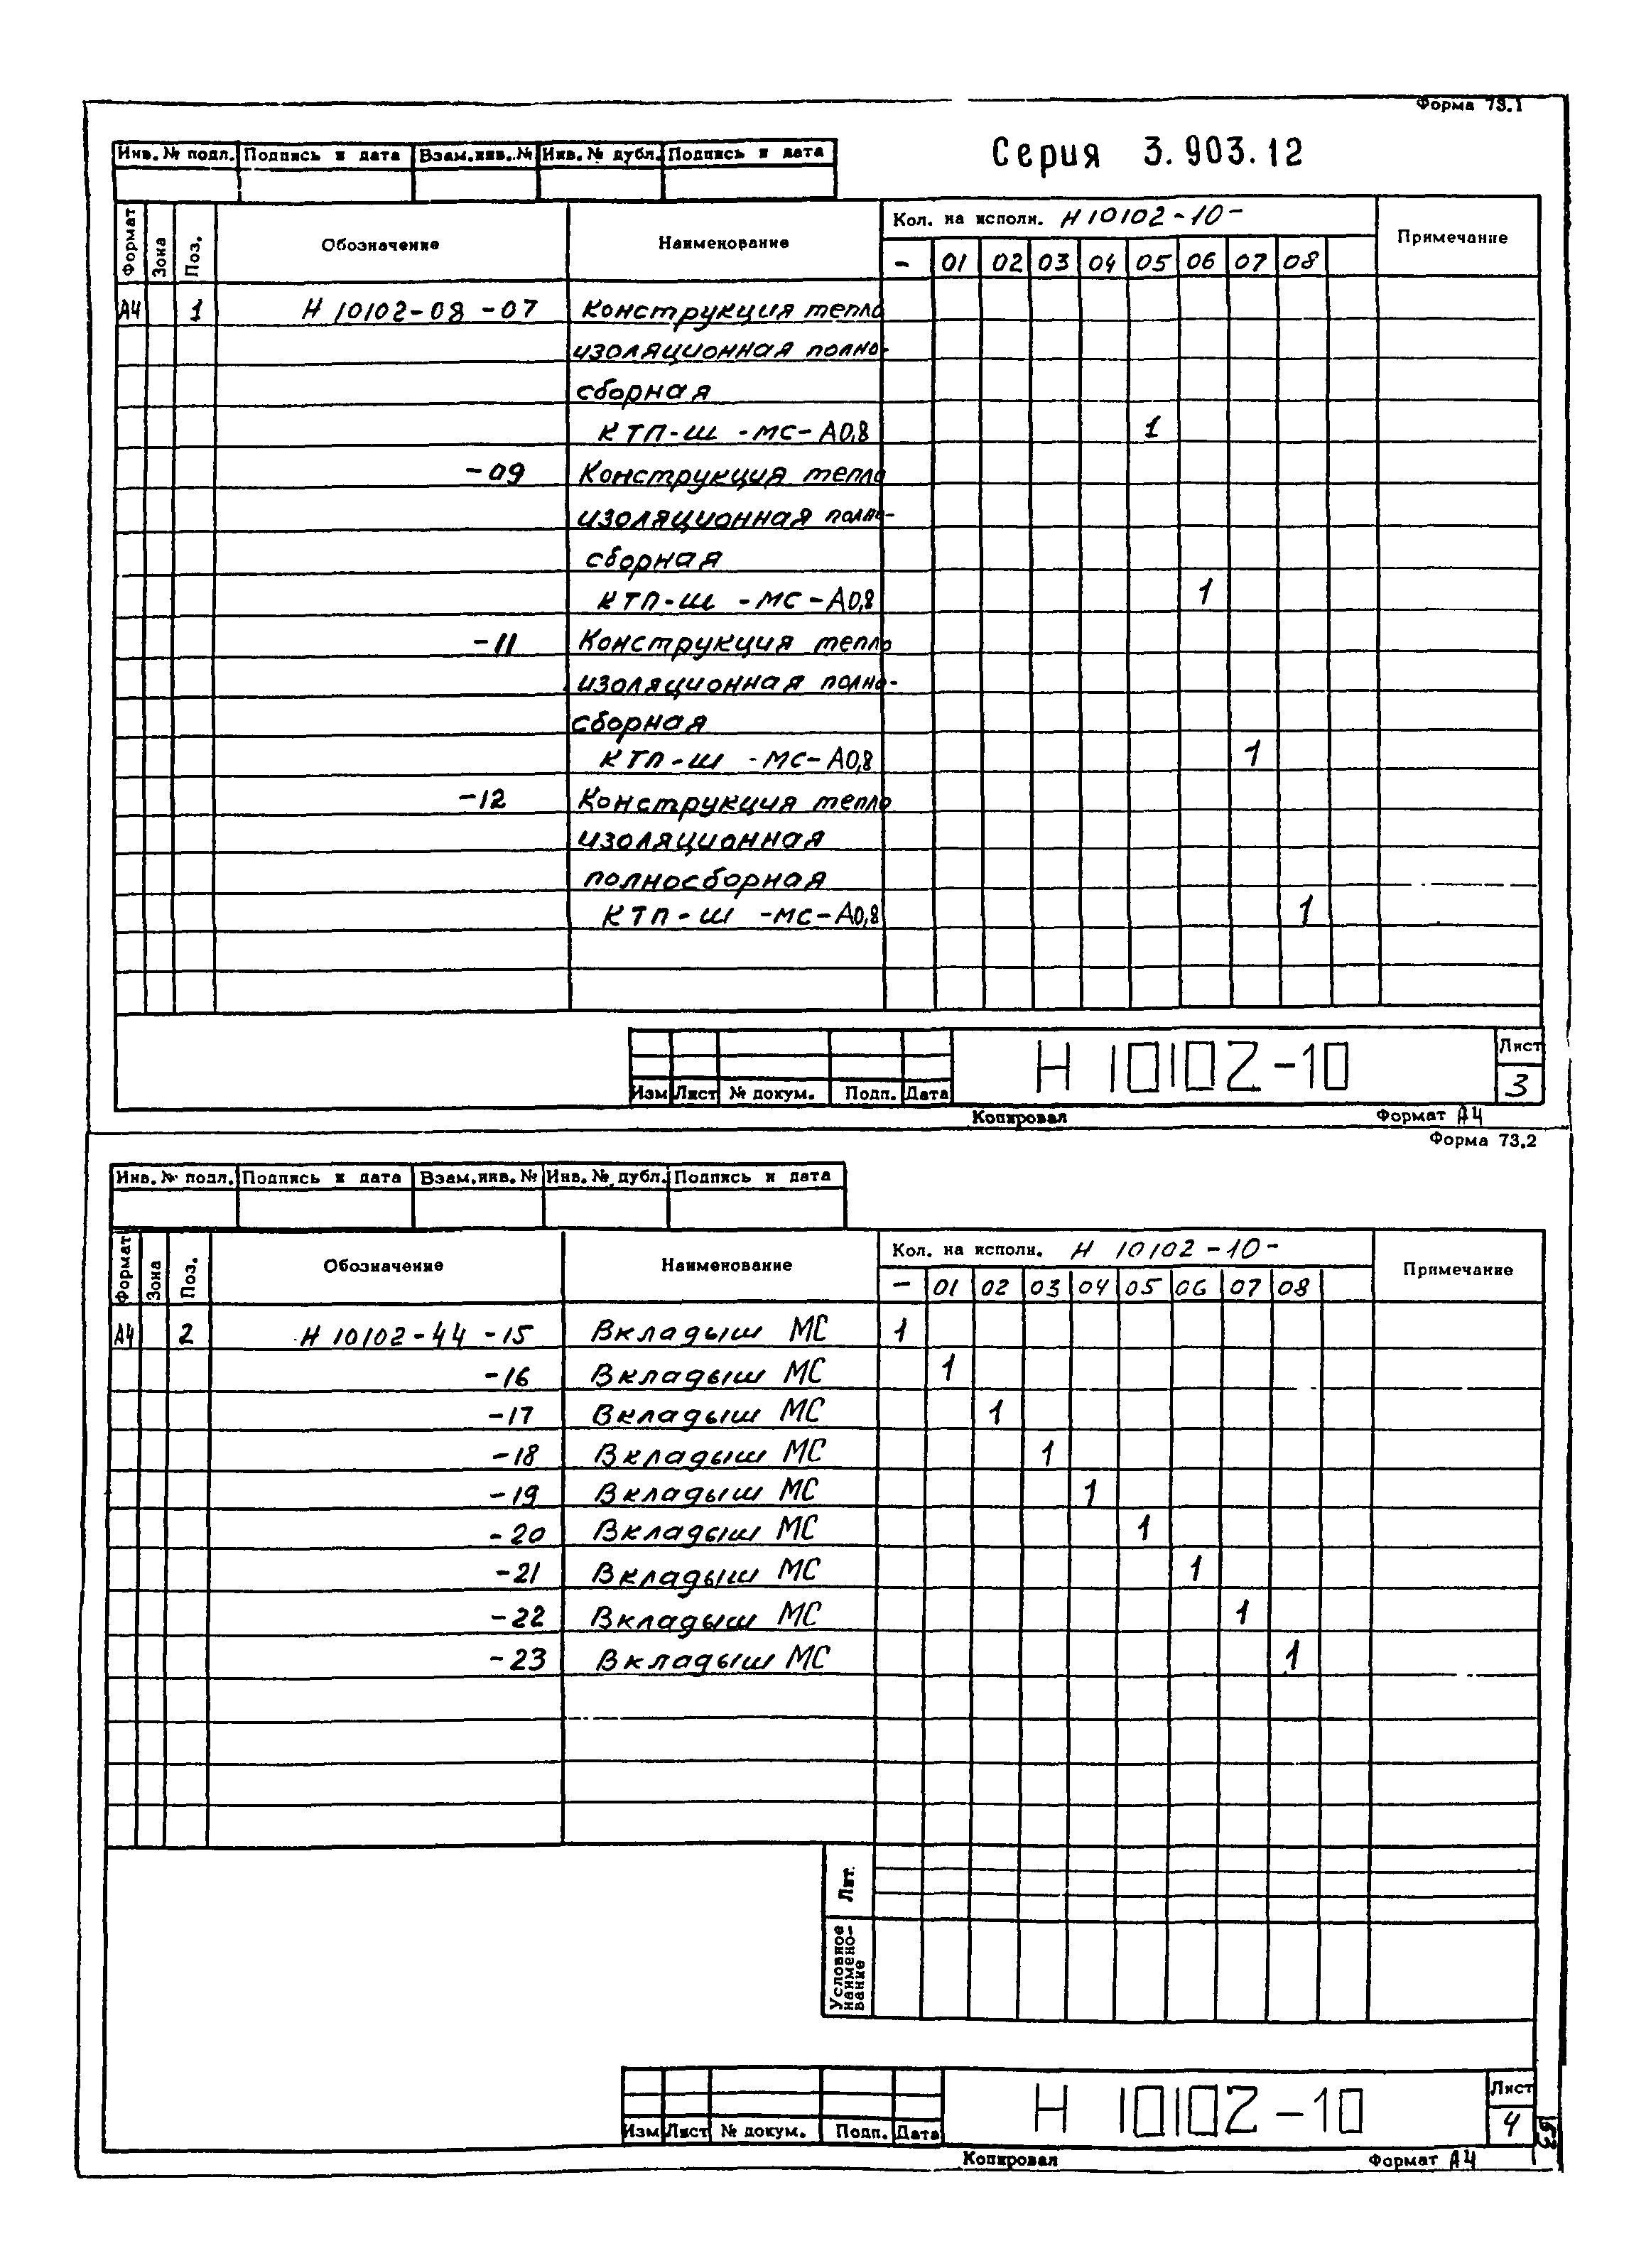 Форма 73.1
Серия 3.903.12
Инв. № подл. Подпись и дата Взам.инв.№ Инв. № дубл. Подпись и дата
Формат Зона Поз. Обозначение Наименование Кол. на исполн. Н 10102-10- Примечание
- 01 02 03 04 05 06 07 08
А4 1 Н 10102-08 -07 Конструкция тепло
изоляционная полно-
сборная
КТП-Ш -МС-А0,8 1
-09 Конструкция тепло
изоляционная полно-
сборная
КТП-Ш -МС-А0,8 1
-11 Конструкция тепло
изоляционная полно-
сборная
КТП-Ш -МС-А0,8 1
-12 Конструкция тепло
изоляционная
полносборная
КТП-Ш -МС-А0,8 1
Изм Лист № докум. Подп. Дата Н 10102-10 Лист 3
Копировал Формат А4
Форма 73.2
Инв. № подл. Подпись и дата Взам.инв. № Инв. № дубл. Подпись и дата
Формат Зона Поз. Обозначение Наименование Кол. на исполн. Н 10102-10- Примечание
- 01 02 03 04 05 06 07 08
А4 2 Н 10102-44 -15 Вкладыш МС 1
-16 Вкладыш МС 1
-17 Вкладыш МС 1
-18 Вкладыш МС 1
-19 Вкладыш МС 1
-20 Вкладыш МС 1
-21 Вкладыш МС 1
-22 Вкладыш МС 1
-23 Вкладыш МС 1
Лит.
Условное
наимено-
вание
Изм Лист № докум. Подп. Дата Н 10102-10 Лист 4
Копировал Формат А4